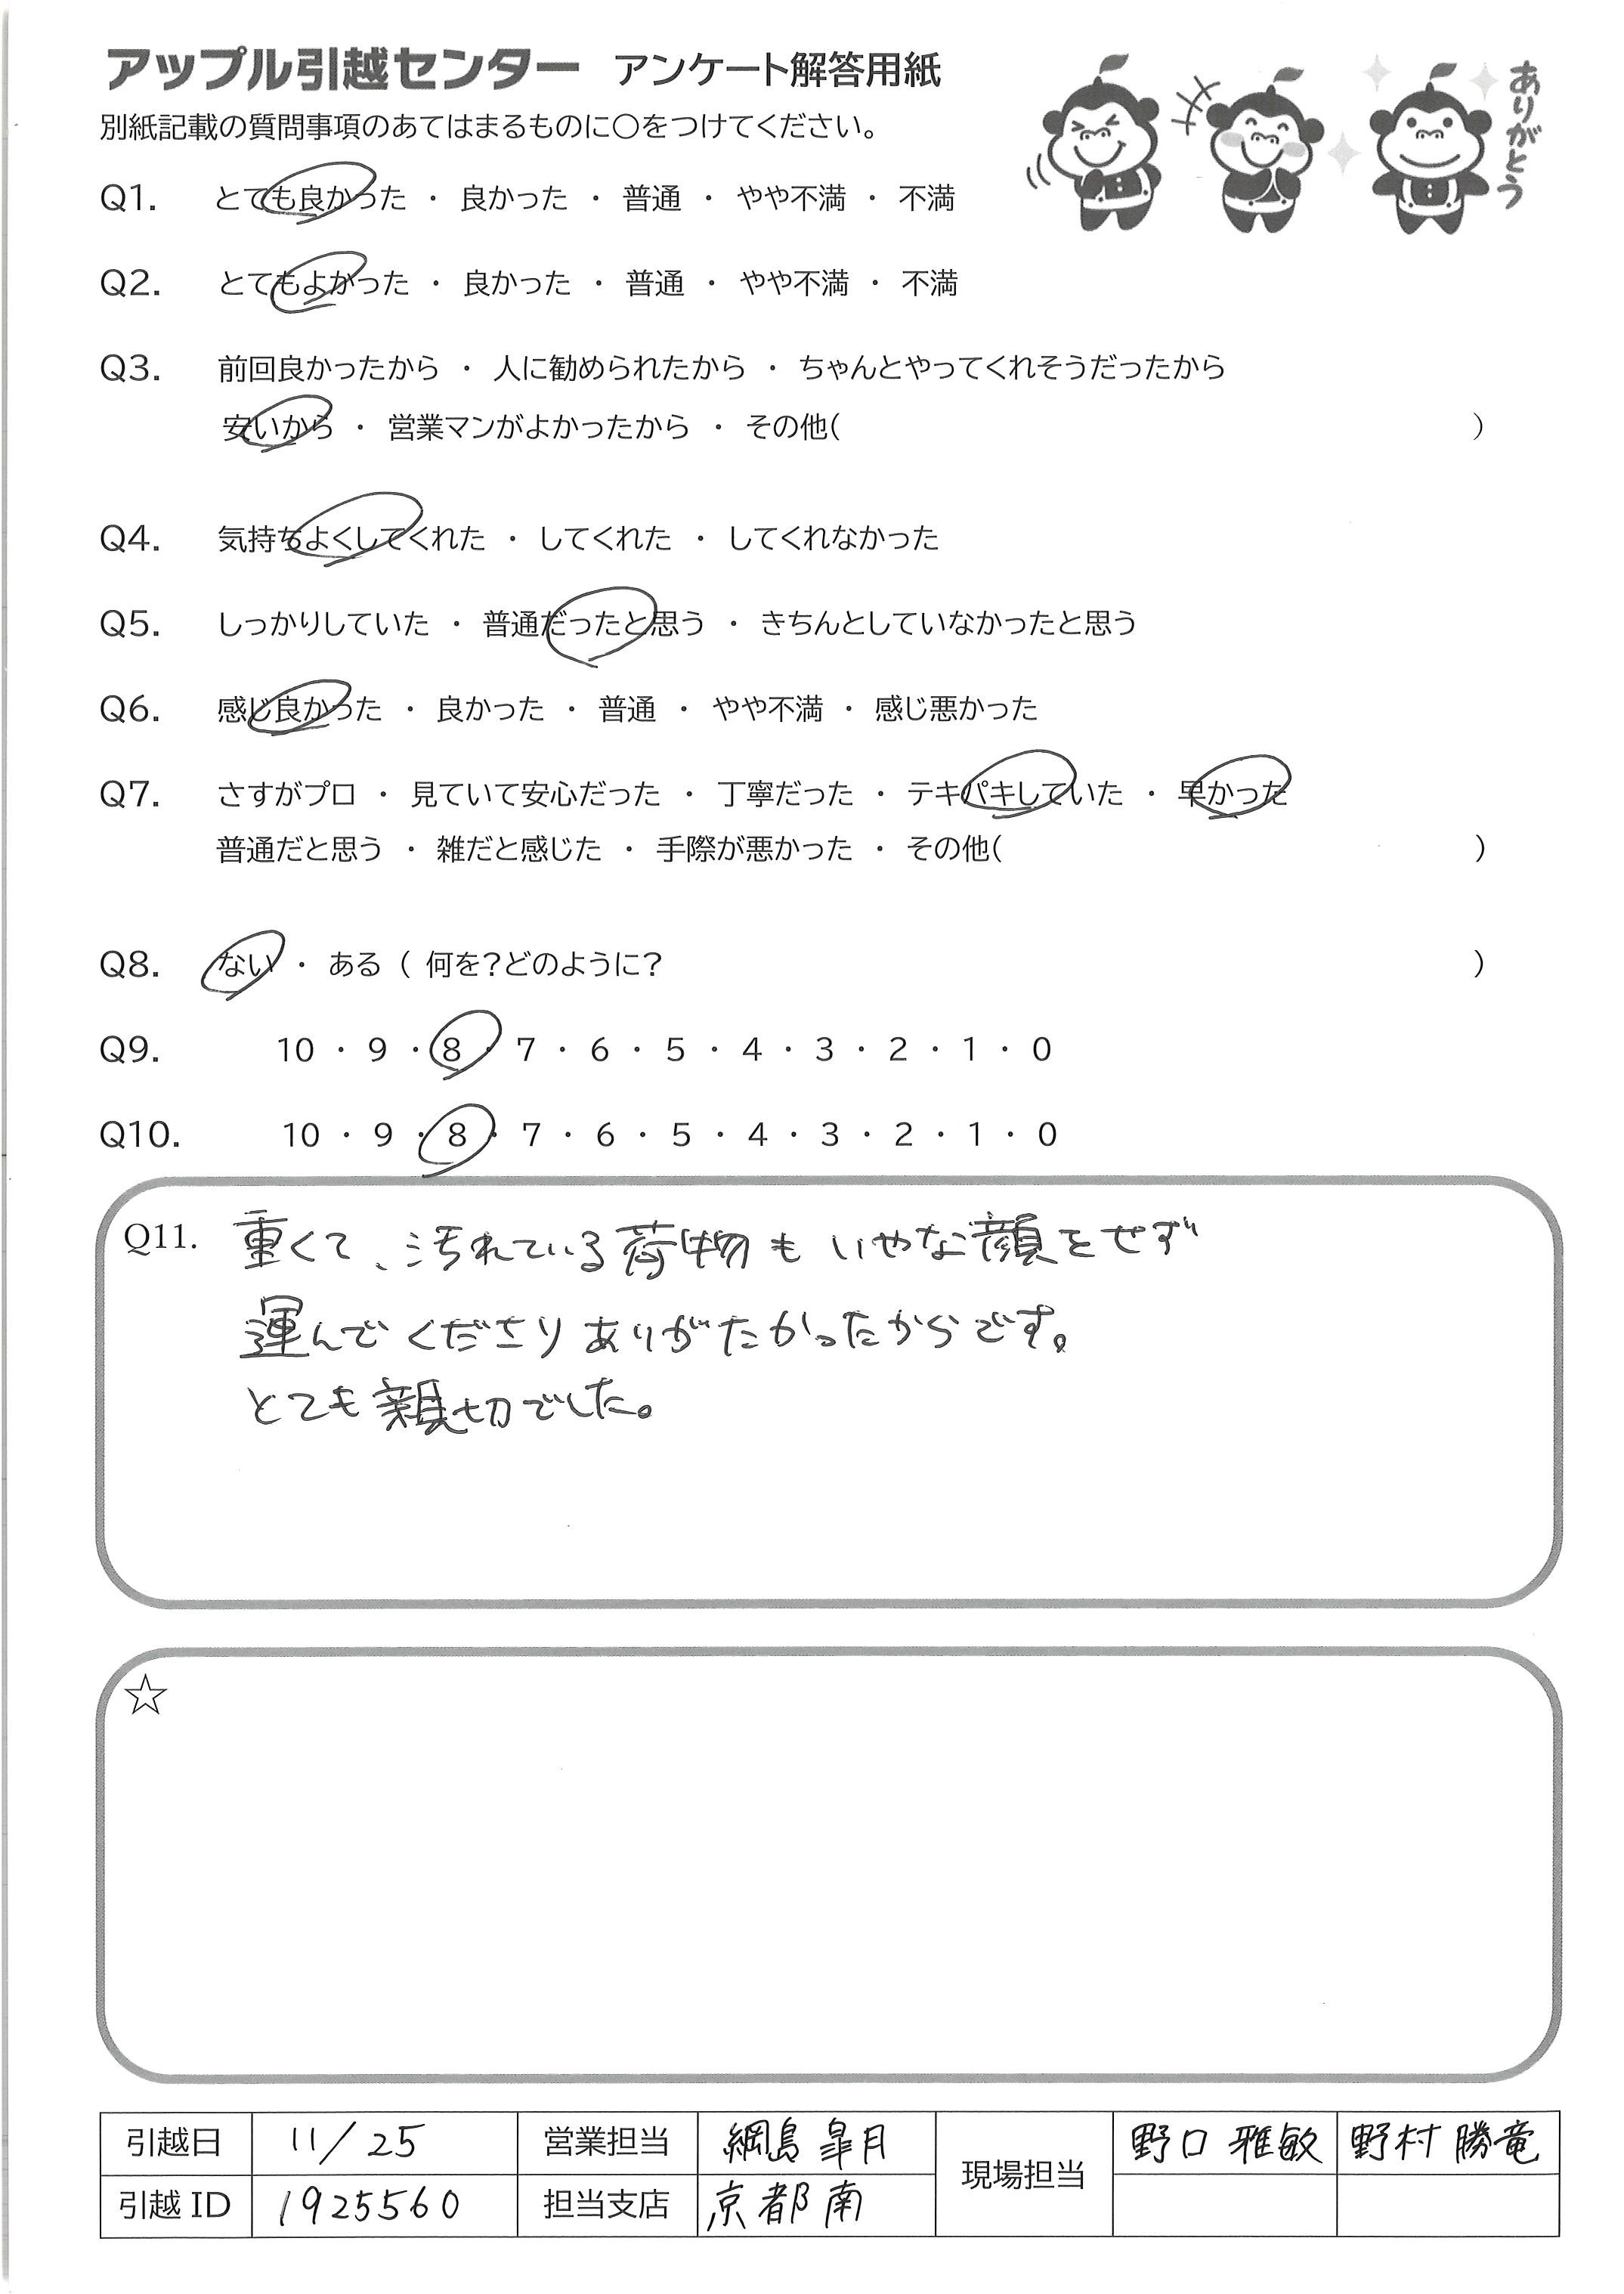 アップル引越センター アンケート解答用紙
ありがとう
別紙記載の質問事項のあてはまるものに○をつけてください。
Q1. とても良かった ・ 良かった ・ 普通 ・ やや不満 ・ 不満
Q2. とてもよかった ・ 良かった ・ 普通 ・ やや不満 ・ 不満
Q3. 前回良かったから ・ 人に勧められたから ・ ちゃんとやってくれそうだったから
安いから ・ 営業マンがよかったから ・ その他( )
Q4. 気持ちよくしてくれた ・ してくれた ・ してくれなかった
Q5. しっかりしていた ・ 普通だったと思う ・ きちんとしていなかったと思う
Q6. 感じ良かった ・ 良かった ・ 普通 ・ やや不満 ・ 感じ悪かった
Q7. さすがプロ ・ 見ていて安心だった ・ 丁寧だった ・ テキパキしていた ・ 早かった
普通だと思う ・ 雑だと感じた ・ 手際が悪かった ・ その他( )
Q8. ない ・ ある ( 何を?どのように? )
Q9. 10 ・ 9 ・ 8 ・ 7 ・ 6 ・ 5 ・ 4 ・ 3 ・ 2 ・ 1 ・ 0
Q10. 10 ・ 9 ・ 8 ・ 7 ・ 6 ・ 5 ・ 4 ・ 3 ・ 2 ・ 1 ・ 0
Q11. 重くて、汚れている荷物もいやな顔をせず
運んでくださりありがたかったからです。
とても親切でした。
☆
引越日 11/25 営業担当 綱島 皐月 現場担当 野口 雅敏 野村 勝竜
引越ID 1925560 担当支店 京都南